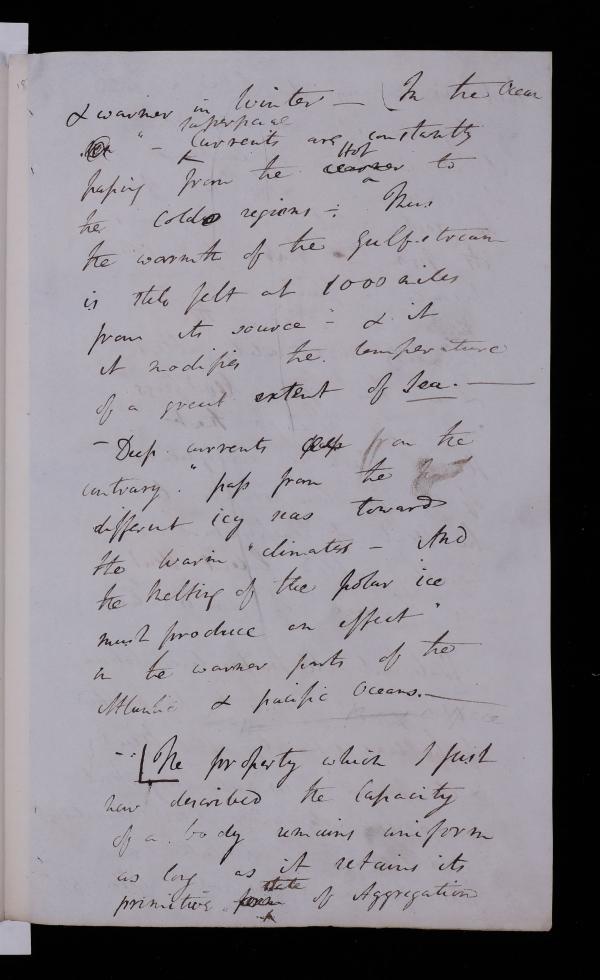 & warmer in Winter – [In the Ocean
superficial
" – Currents are constantly
Hot
passing from the warmer to
the Colder regions –: Thus
the warmth of the gulf-stream
is still felt at 1000 miles
from its source – & it
it modifies the temperature
of a great extent of Sea. –
– Deep currents deep from the
contrary " pass from the
different icy seas towards
the warm "climates – And
the Melting of the polar ice
must produce an effect "
in the warmer parts of the
Atlantic & pacific Oceans. –
– " [The property which I just
have described the Capacity
of a body remains uniform
as long as it retains its
state
primitive form of Aggregation